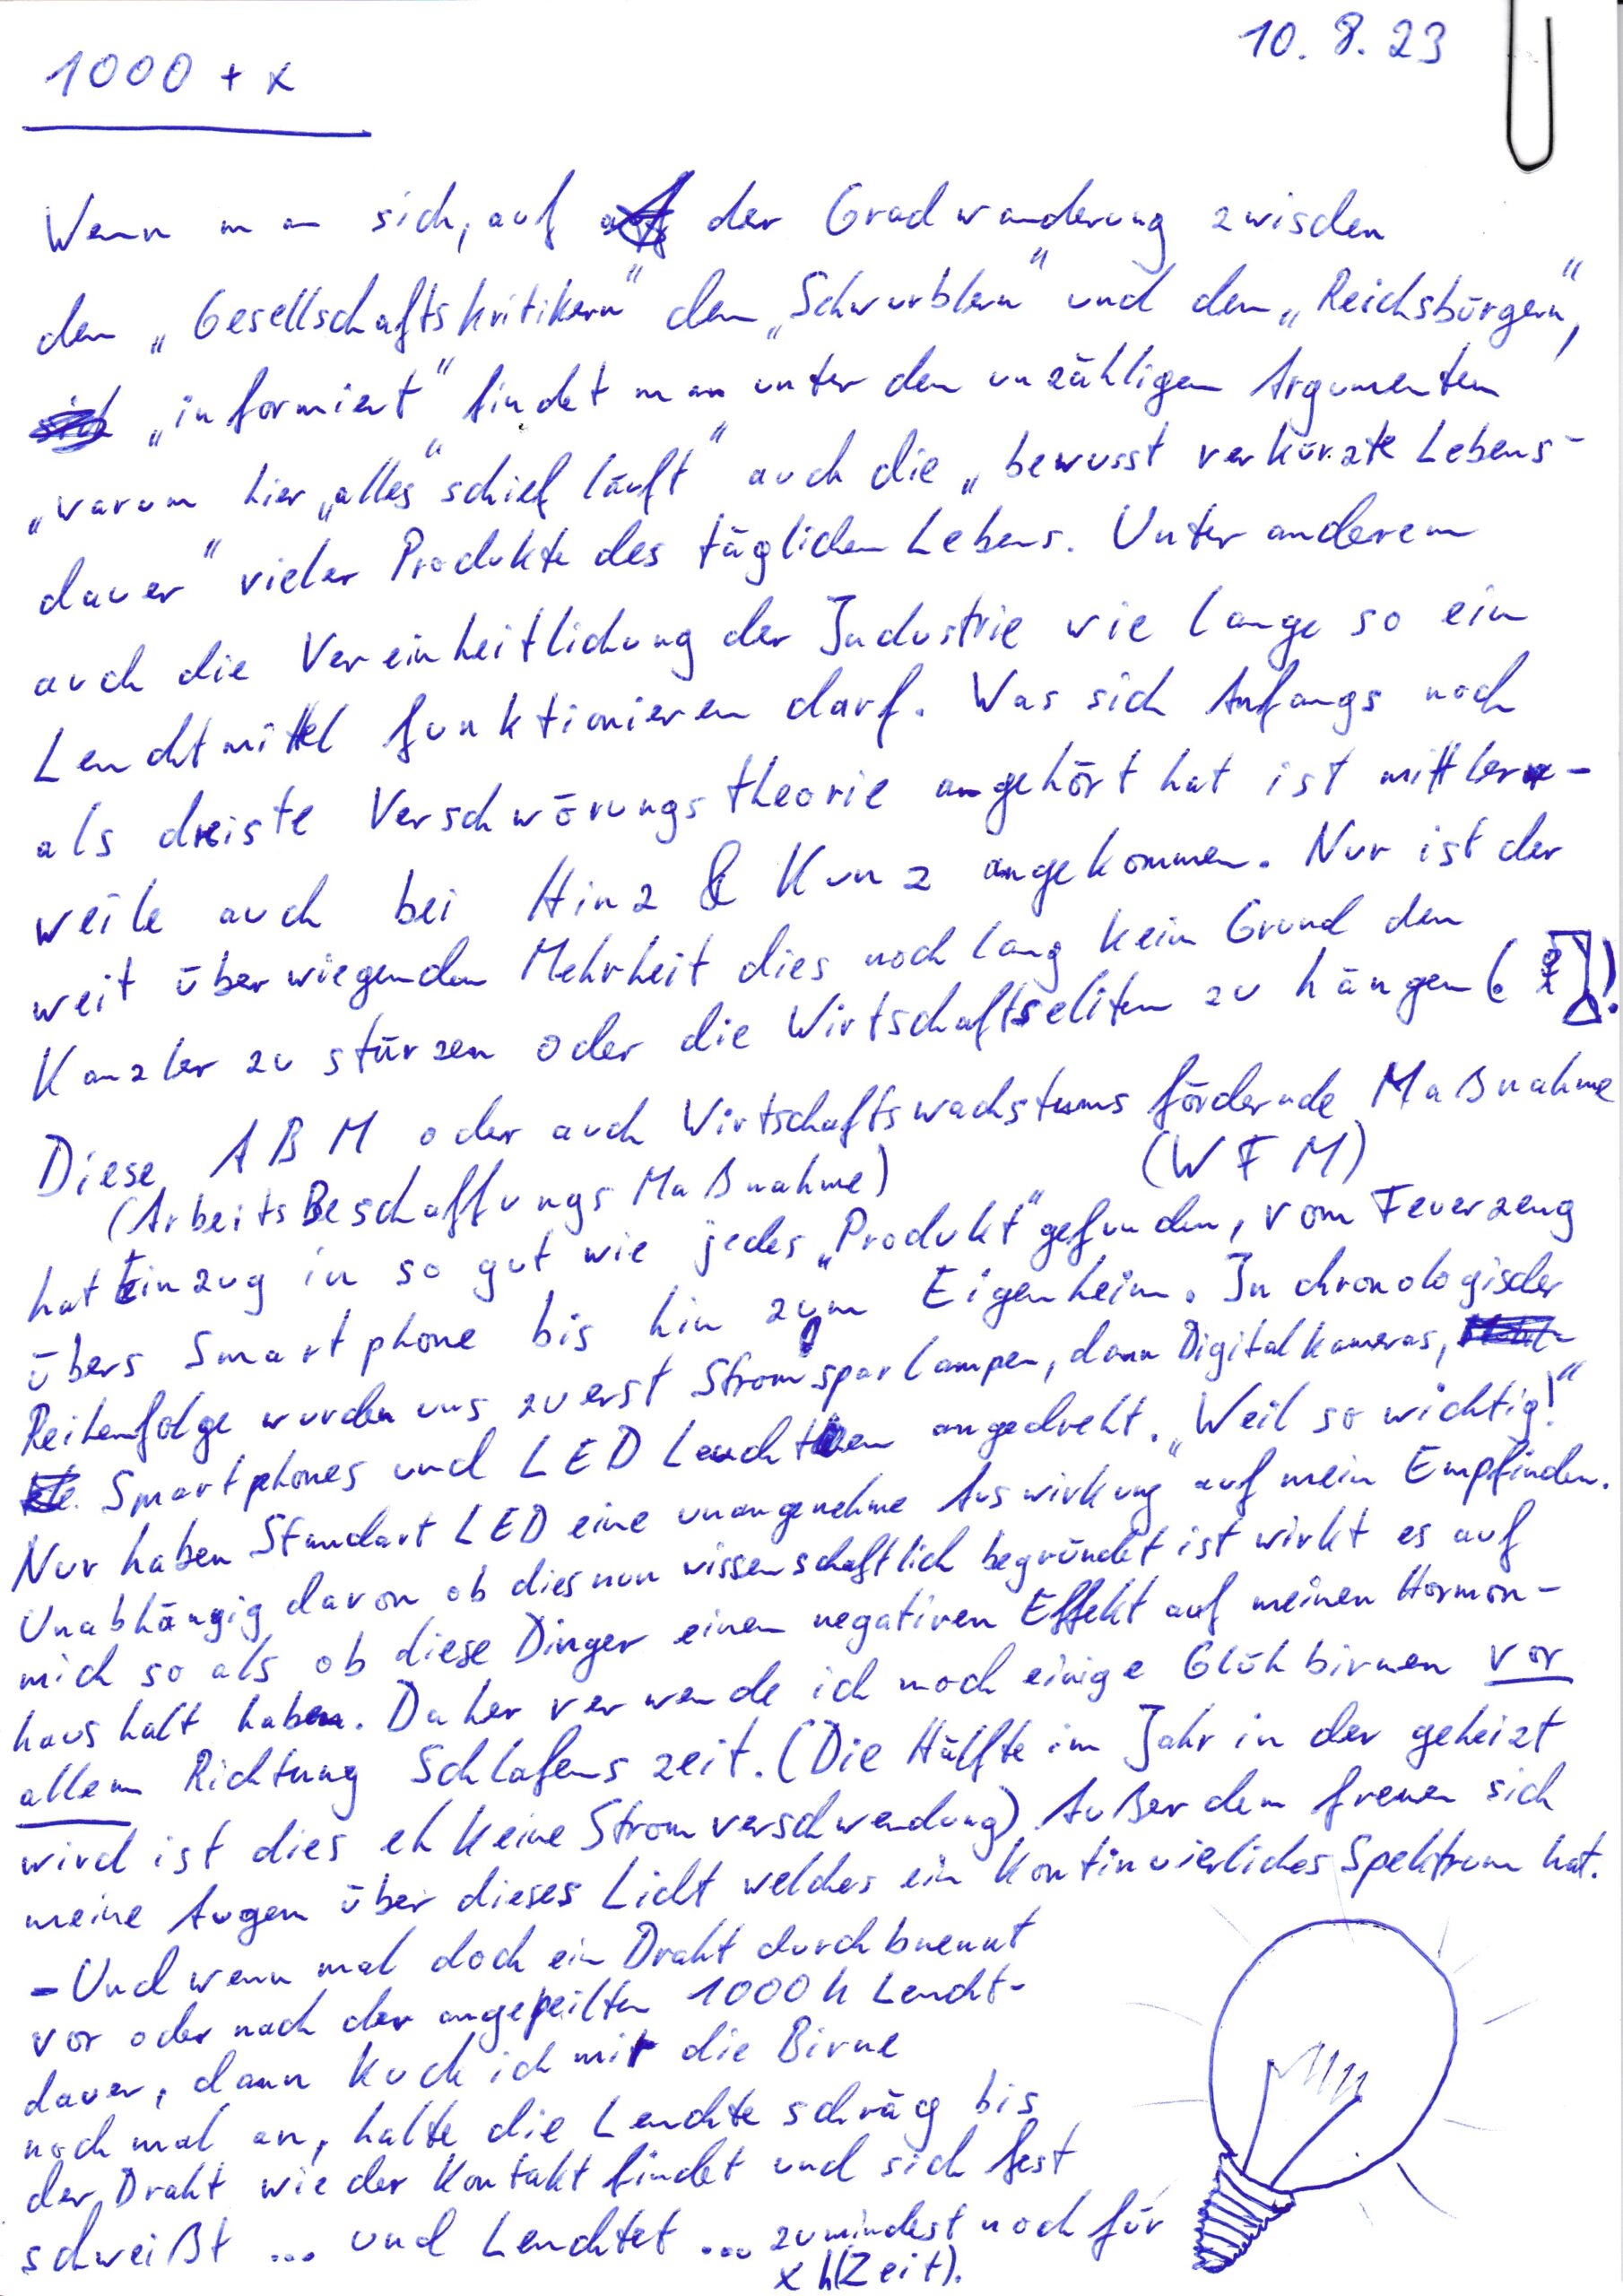 10.8.23
1000 + x
Wenn man sich, auf der Gradwanderung zwischen
den „Gesellschaftskritikern" den „Schwurblern" und den „Reichsbürgern",
„informiert" findet man unter den unzähligen Argumenten
„warum hier „alles" schief läuft" auch die „bewusst verkürzte Lebens-
dauer" vieler Produkte des täglichen Lebens. Unter anderem
auch die Vereinheitlichung der Industrie wie lange so ein
Leuchtmittel funktionieren darf. Was sich Anfangs noch
als dreiste Verschwörungstheorie angehört hat ist mittlerw-
weile auch bei Hinz & Kunz angekommen. Nur ist der
weit überwiegenden Mehrheit dies noch lang kein Grund den
Kanzler zu stürzen oder die Wirtschaftseliten zu hängen (!)
Diese ABM oder auch Wirtschaftswachstums fördernde Maßnahme
(ArbeitsBeschaffungsMaßnahme) (WFM)
hat Einzug in so gut wie jedes „Produkt" gefunden, vom Feuerzeug
übers Smartphone bis hin zum Eigenheim. In chronologischer
Reihenfolge wurden uns zuerst Stromsparlampen, dann Digitalkameras,
Smartphones und LED Leuchten angedreht. „Weil so wichtig!"
Nur haben Standart LED eine unangenehme Auswirkung auf mein Empfinden.
Unabhängig davon ob dies nun wissenschaftlich begründet ist wirkt es auf
mich so als ob diese Dinger einen negativen Effekt auf meinen Hormon-
haushalt haben. Daher verwende ich noch einige Glühbirnen vor
allem Richtung Schlafenszeit. (Die Hälfte im Jahr in der geheizt
wird ist dies eh keine Stromverschwendung) Außerdem freuen sich
meine Augen über dieses Licht welches ein Kontinuierliches Spektrum hat.
- Und wenn mal doch ein Draht durchbrennt
vor oder nach der angepeilten 1000 h Leucht-
dauer, dann kuck ich mir die Birne
noch mal an, halte die Leuchte schräg bis
der Draht wieder Kontakt findet und sich fest
schweißt ... und Leuchtet ... zumindest noch für
x h(Zeit).